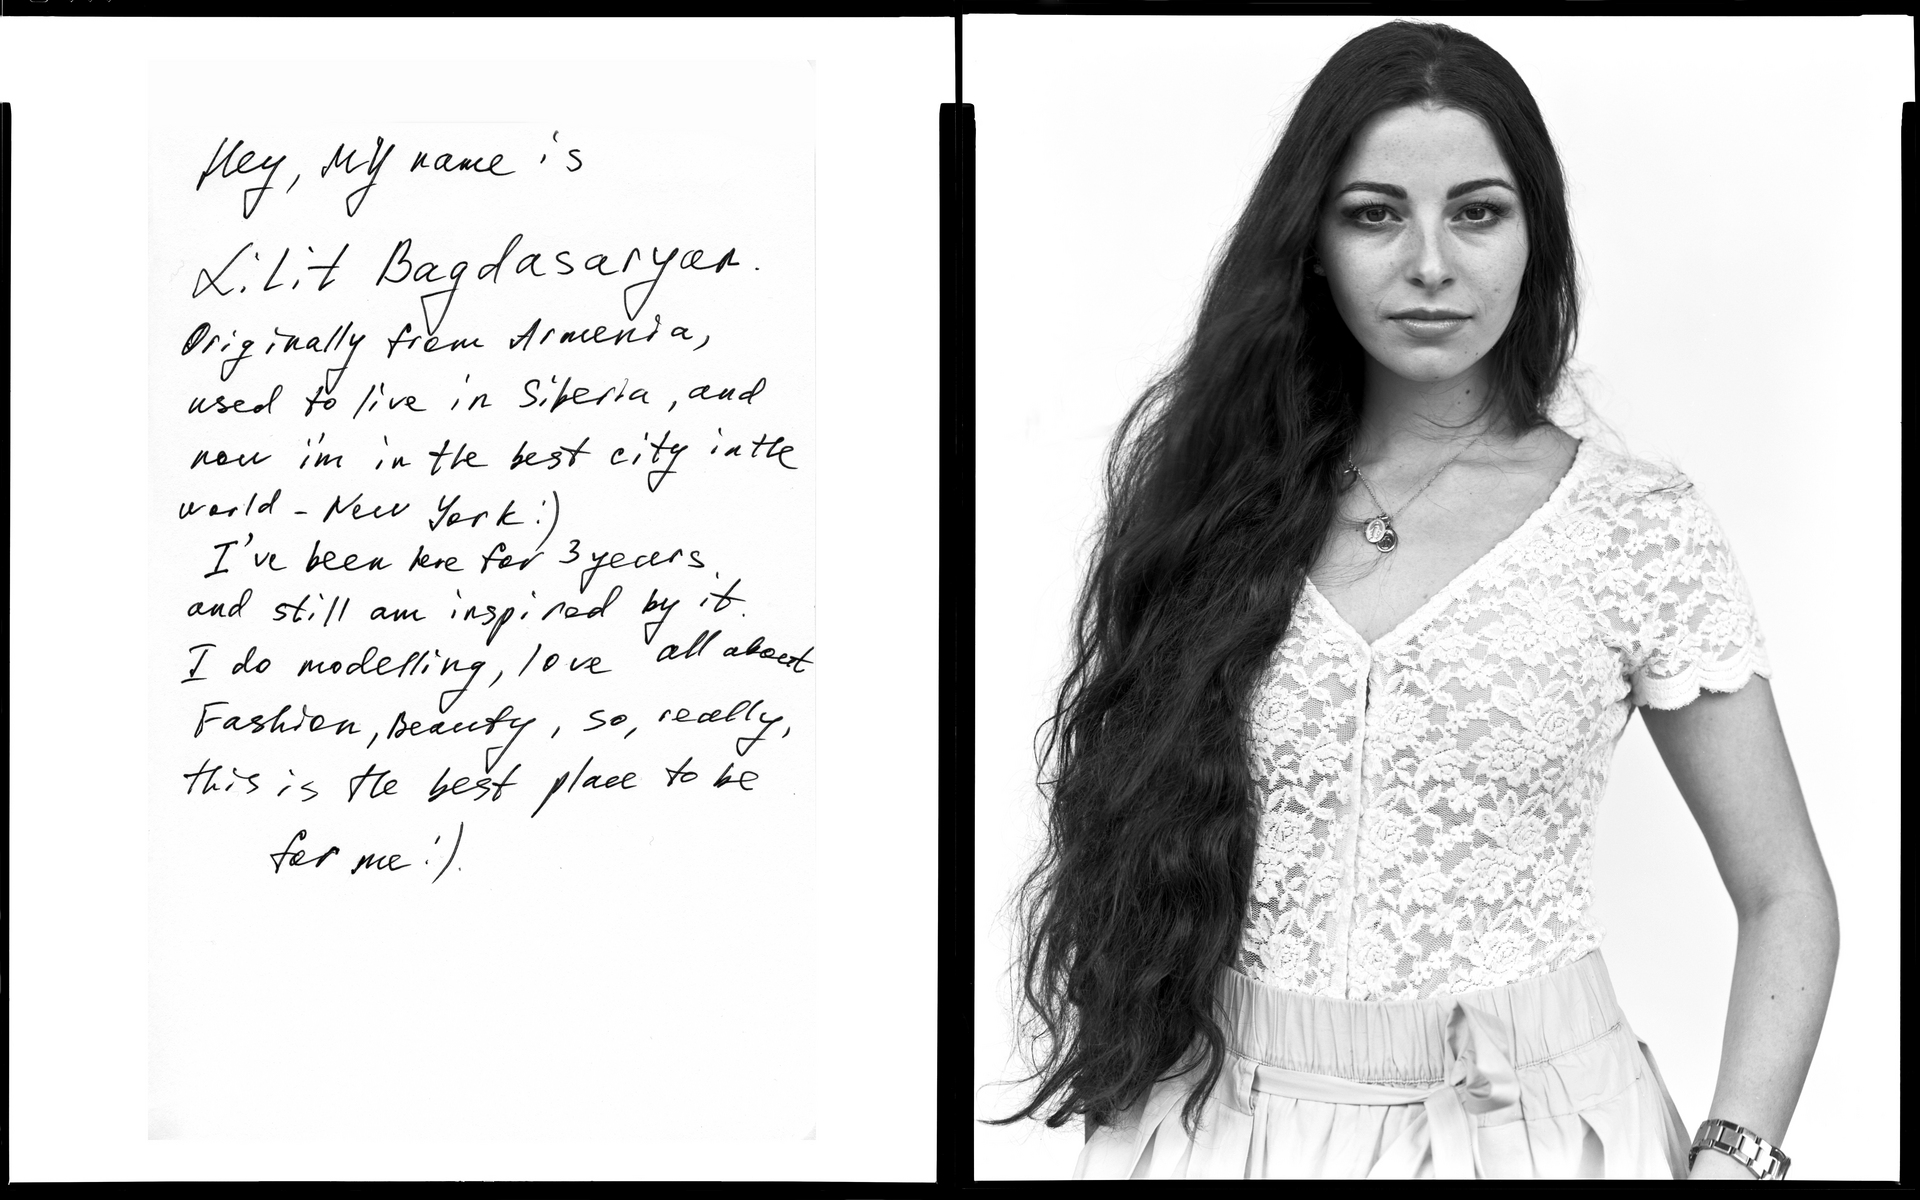 Hey, My name is
Lilit Bagdasaryan.
Originally from Armenia,
used to live in Siberia, and
now i'm in the best city in the
world - New York :)
I've been here for 3 years
and still am inspired by it.
I do modelling, love all about
Fashion, Beauty, so, really,
this is the best place to be
for me :).